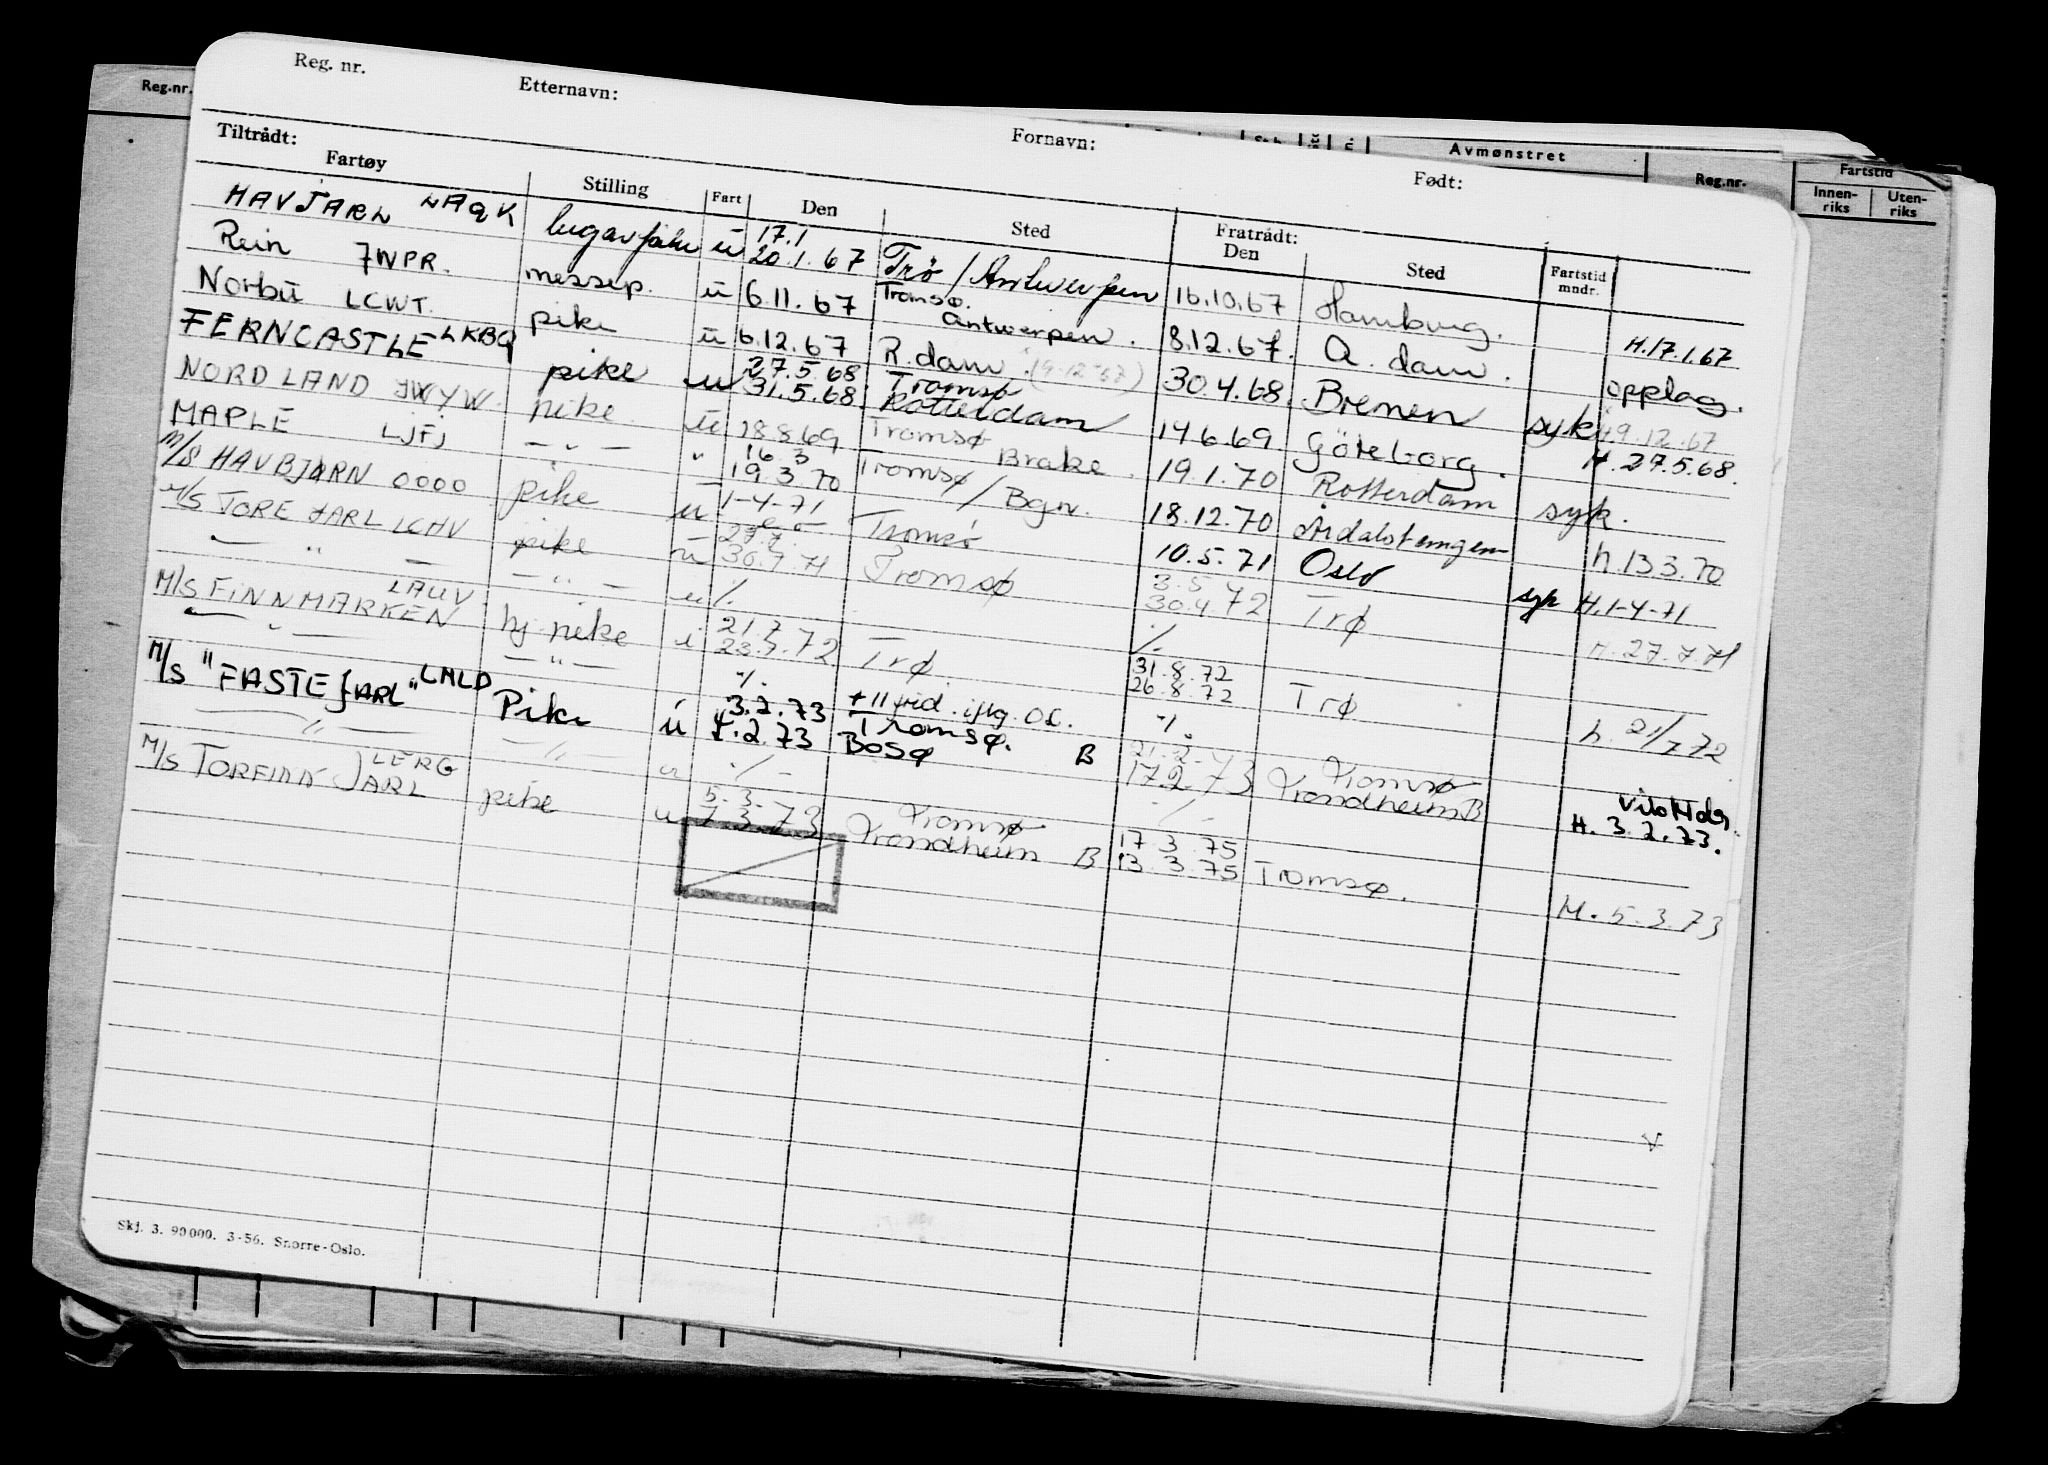 Reg. nr. Etternavn: Fornavn: Født:
Reg.nr. Avmønstret Reg.nr. Fartstid
Innen-riks Uten-riks
Tiltrådt: Fratrådt:
Fartøy Stilling Fart Den Sted Den Sted Fartstid mndr.
HAVJARL LAQK lugarpike u 17.1 20.1.67 Trø / Antwerpen 16.10.67 Hamburg. H.17.1.67
Rein JWPR. messep. u 6.11.67 Tromsø. Antwerpen. 8.12.67. A.dam. opplag.
Norbu LCWT. pike u 6.12.67 R.dam. (9-12-67) 30.4.68. Bremen syk 19.12.67
FERNCASTLE LKBQ pike u 27.5.68 31.5.68 Tromsø Rotterdam 14.6.69 Göteborg. H.27.5.68.
NORDLAND JWYW. pike u 18.8.69 Tromsø Brake. 19.1.70 Rotterdam syk.
MAPLE LJFJ — " — " 16.3 19.3.70 Tromsø / Bgn. 18.12.70 Årdalstangen h.13.3.70
M/S HAVBJØRN 0000 pike u 1-4-71 Tromsø 10.5.71 Oslo syk H.1-4-71
M/S TORE JARL LCHV pike u 27.7. 30.7.71 Tromsø 3.5.72 30.4.72 Trø H.27.7.71
— " — — " — u ./. ./.
M/S FINNMARKEN LAUV hj.pike i 21.7. 23.7.72 Trø. 31.8.72 26.8.72 Trø h. 21/7 72
— " — — " — ./. +11 ./.
M/S "FASTE JARL" LMLD Pike u 3.2.73 4.2.73 Tromsø. Bosø B 21.2.73 17.2.73 Tromsø Trondheim B H. 3.2.73.
— " — — " — u ./. ./.
M/S TORFINN JARL LERG pike u 5.3. 7.3.73 Tromsø Trondheim B 17.3.75 13.3.75 Tromsø. H. 5.3.73
V
Skj. 3. 90000. 3-56. Snorre-Oslo.